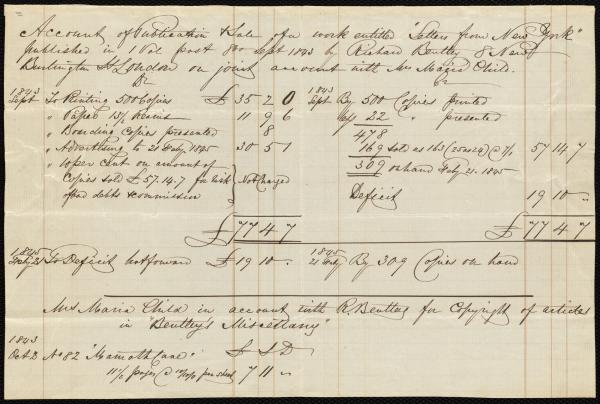 Account of Publication & Sale of a work entitled "Letters from New York"
published in 1 Vol post 8vo Sept 1843 by Richard Bentley 8 New
Burlington St London on joint account with Mrs Maria Child.
Dr Cr
1843 1843
Sept To Printing 500 Copies £ 35 2 0 Sept By 500 Copies printed
" Paper 13½ reams 11 9 6 22 " presented
" Boarding Copies presented 8 478
" Advertising to 21 Feby 1845 30 5 1 169 sold as 163 (25 as 24) @ 7/1 57 14 7
" 10 per cent on amount of 309 on hand Feby 21. 1845
Copies sold £57.14.7 for risk Not Charged Deficit 19 10 "
of bad debts & commission
£ 77 4 7 £ 77 4 7
1845 1845
Feby 21 To Deficit bot forward £ 19 10 " 21 Feby By 309 Copies on hand
Mrs Maria Child in account with R Bentley for Copyright of articles
in "Bentley's Miscellany"
1843
Oct 2 No 82 "Mamoth Cave" £ S D
11½ pages @ per sheet 7 11 "